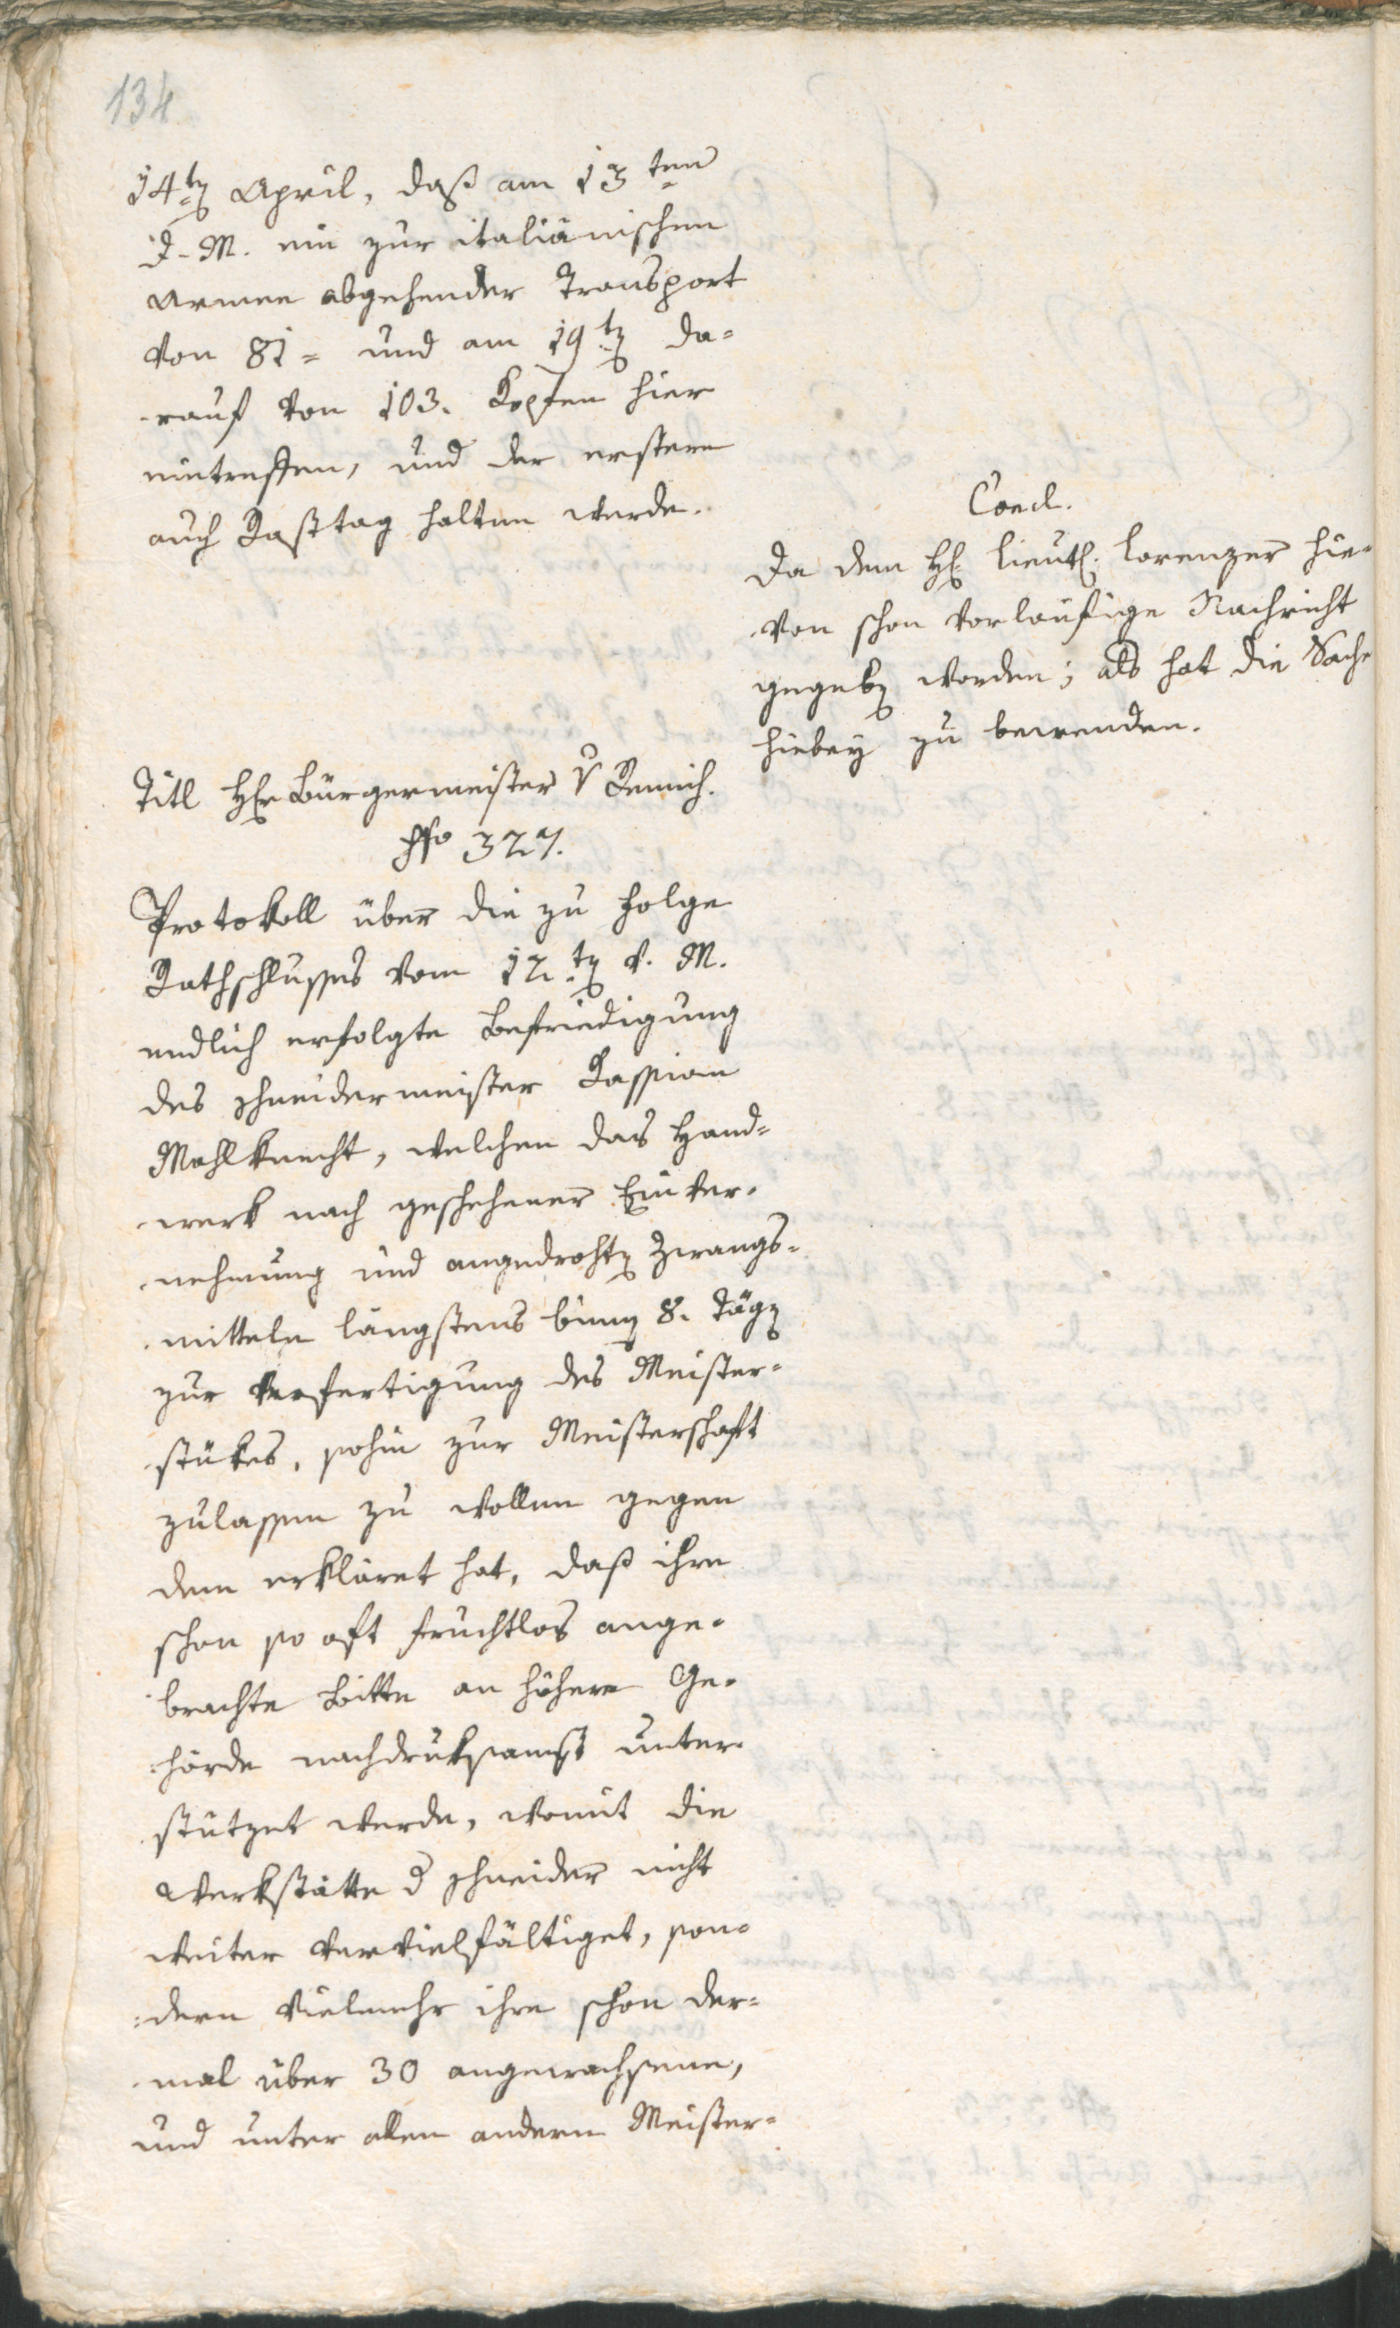 134
14ten April, daß am 13ten
d. M. ein zur italiänischen
Armee abgehender Transport
von 81 = und am 19ten da=
rauf von 103. Kopfen hier
eintreffen, und der erstere
auch Rasttag halten werde.
Concl.
Da dem H. Lieut. Lorenzer hie=
von schon vorläufige Nachricht
gegeben worden; als hat die Sache
hiebey zu bewenden.
Titl Hr Bürgermeister v
No 327.
Protokoll über die zu Folge
Rathschlusses vom 12ten v. M.
endlich erfolgte Befriedigung
des Schneidermeister Kassian
Mahlknecht, welchen das Hand=
werk nach geschehener Einver=
nehmung und angedrohten Zwangs=
mitteln längstens binnen 8. Tägen
zur Verfertigung des Meister=
stükes, sohin zur Meisterschaft
zulassen zu wollen gegen
dem erkläret hat, daß ihre
schon so oft fruchtlos ange=
brachte Bitte an höhere Be=
hörde nachdruksamst unter=
stützet werde, womit die
Werkstätte d Schneider nicht
weiter vervielfältiget, son=
dern vielmehr ihre schon der=
mal über 30 angewachsene,
und unter allen andern Meister=